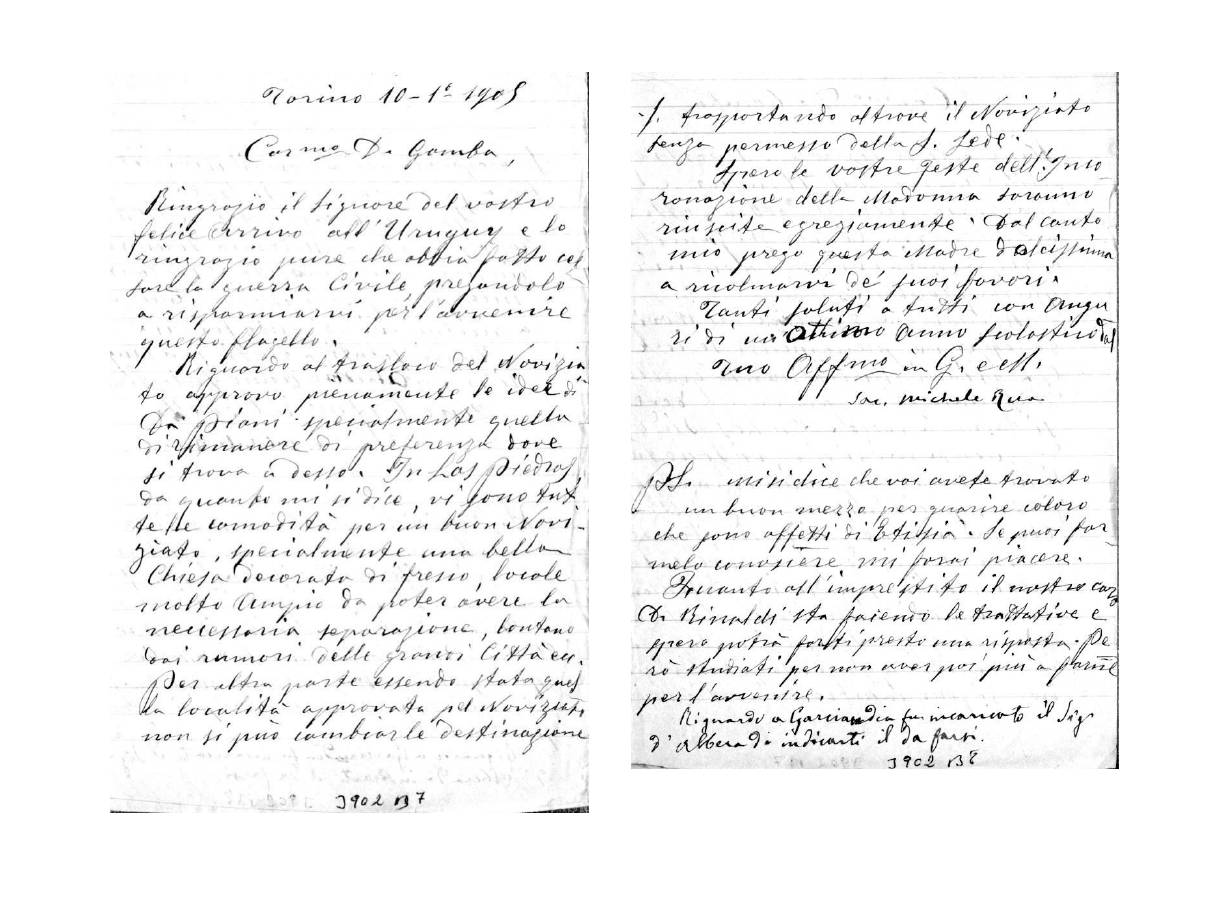 Torino 10-1º-1905
Carmo D. Gamba,
Ringrazio il Signore del vostro
felice arrivo all'Uruguy e lo
ringrazio pure che abbia fatto ces
sare la guerra Civile, pregandolo
a risparmiarvi per l'avvenire
questo flagello.
Riguardo al trasloco del Novizia
to approvo pienamente le idee di
D. Piani specialmente quella
di rimanere di preferenza dove
si trova adesso. In Las Piedras,
da quanto mi si dice, vi sono tut
te le comodità per un buon Novi-
ziato, specialmente una bella
Chiesa decorata di fresco, locale
molto ampio da poter avere la
necessaria separazione, lontano
dai rumori delle grandi Città ecc.
Per altra parte essendo stata quel
la località approvata pel Noviziato
non si può cambiarle destinazione
3902 B7
/. trasportando altrove il Noviziato
senza permesso della S. Sede.
Spero le vostre feste dell'Inco
ronazione della Madonna saranno
riuscite egregiamente. Dal canto
mio prego questa Madre dolcissima
a ricolmarvi de' suoi favori.
Tanti saluti a tutti con augu
ri di un ottimo anno scolastico dal
Tuo Affmo in G. e M.
Sac. Michele Rua
PS. mi si dice che voi avete trovato
un buon mezzo per guarire coloro
che sono affetti di Etissia. Se puoi far
melo conoscere mi farai piacere.
Quanto all'imprestito il nostro caro
D. Rinaldi sta facendo le trattative e
spero potrà farti presto una risposta. Pe
rò studiati per non aver poi più a farne
per l'avvenire.
Riguardo a Garciandia fu incaricato il Sigr
d'Albera di indicarti il da farsi.
3902 B8